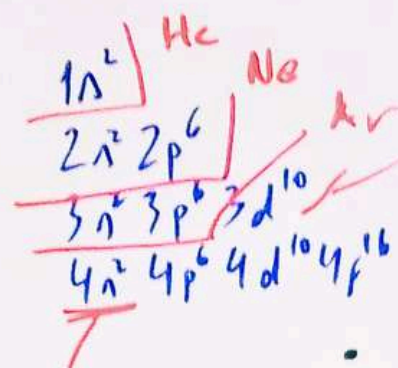 1s² He
2s² 2p⁶ Ne
3s² 3p⁶ 3d¹⁰ Ar
4s² 4p⁶ 4d¹⁰ 4f¹⁶